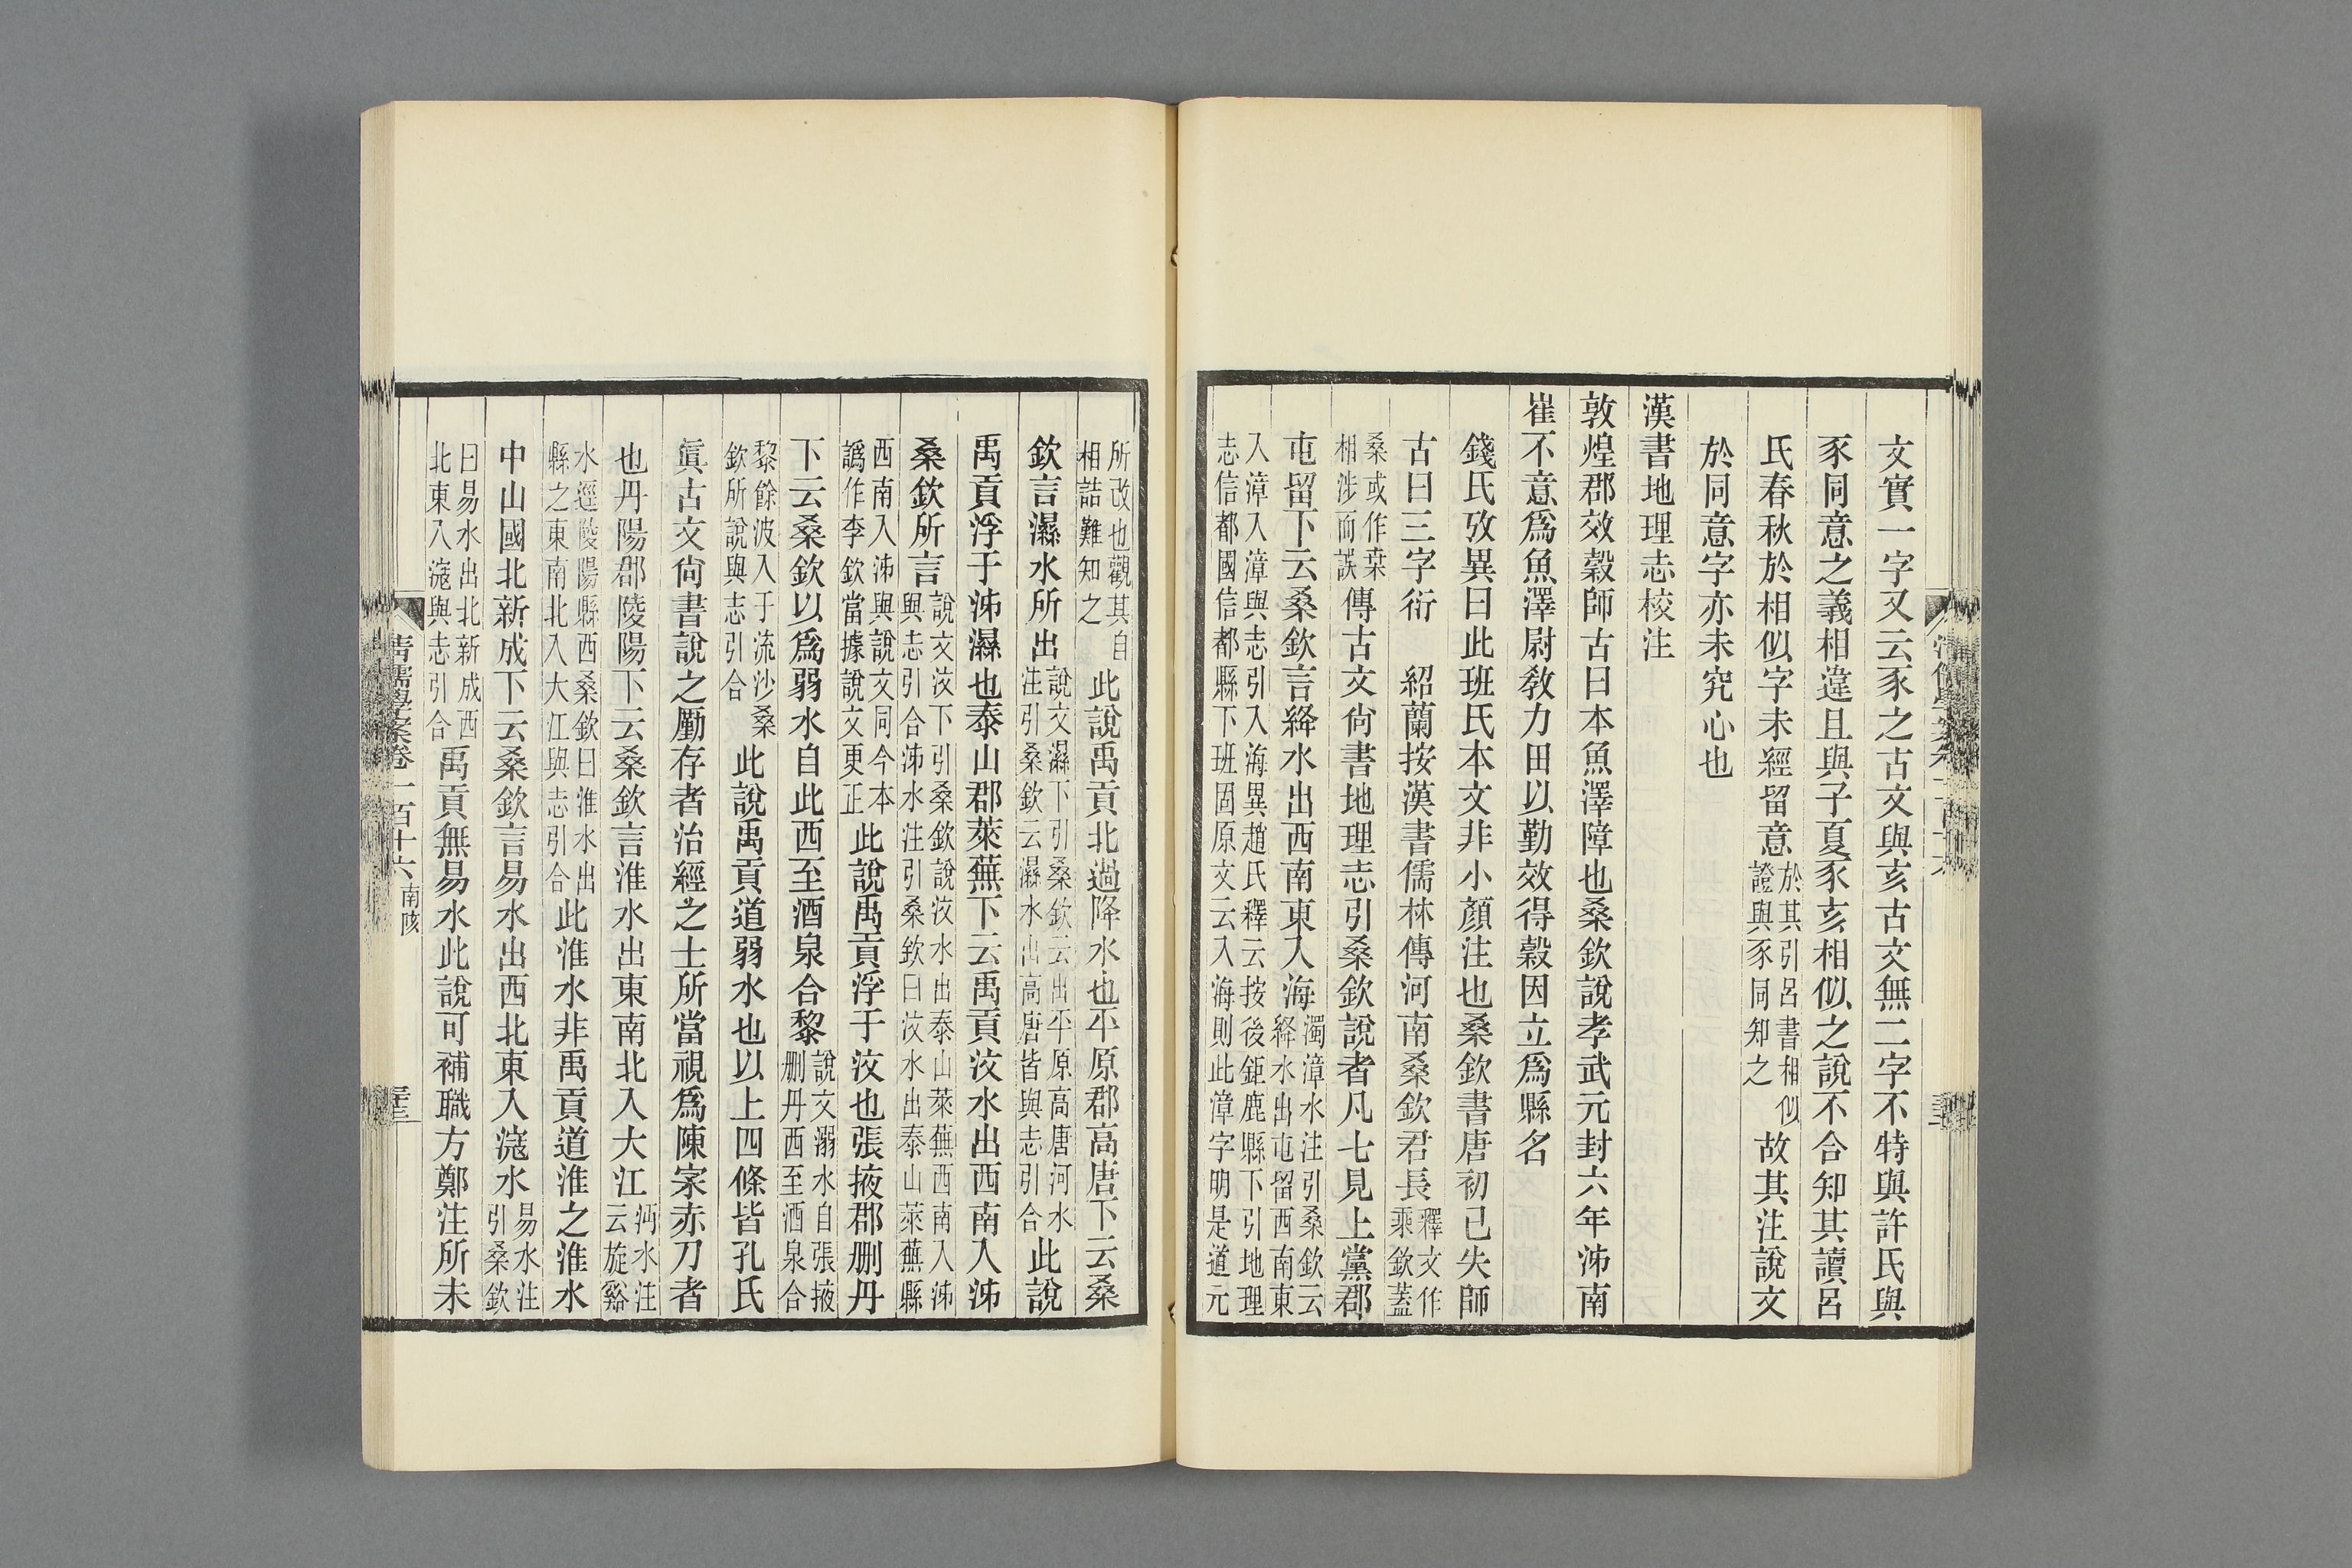 文實一字又云豕之古文與亥古文無二字不特與許氏與
豕同意之義相違且與子夏豕亥相似之說不合知其讀呂
氏春秋於相似字未經留意於其引呂書相似證與豕同知之故其注說文
於同意字亦未究心也
漢書地理志校注
敦煌郡效穀師古曰本魚澤障也桑欽說孝武元封六年泲南
崔不意爲魚澤尉敎力田以勤效得穀因立爲縣名
錢氏攷異曰此班氏本文非小顏注也桑欽書唐初已失師
古曰三字衍　紹蘭按漢書儒林傳河南桑欽君長釋文作乘欽蓋
桑或作桒相涉而誤傳古文尙書地理志引桑欽說者凡七見上黨郡
屯留下云桑欽言絳水出西南東入海濁漳水注引桑欽云絳水出屯留西南東
入漳入漳與志引入海異趙氏釋云按後鉅鹿縣下引地理志信都國信都縣下班固原文云入海則此漳字明是道元
所改也觀其自相詰難知之此說禹貢北過降水也平原郡高唐下云桑
欽言濕水所出說文濕下引桑欽云出平原高唐河水注引桑欽云濕水出高唐皆與志引合此說
禹貢浮于泲濕也泰山郡萊蕪下云禹貢汶水出西南入泲
桑欽所言說文汶下引桑欽說汶水出泰山萊蕪西南入泲與志引合泲水注引桑欽曰汶水出泰山萊蕪縣
西南入泲與說文同今本譌作李欽當據說文更正此說禹貢浮于汶也張掖郡删丹
下云桑欽以爲弱水自此西至酒泉合黎說文溺水自張掖删丹西至酒泉合
黎餘波入于流沙桑欽所說與志引合此說禹貢道弱水也以上四條皆孔氏
眞古文尙書說之厪存者治經之士所當視爲陳宲赤刀者
也丹陽郡陵陽下云桑欽言淮水出東南北入大江沔水注云旋谿
水逕陵陽縣西桑欽曰淮水出縣之東南北入大江與志引合此淮水非禹貢道淮之淮水
中山國北新成下云桑欽言易水出西北東入滱水易水注引桑欽
曰易水出北新成西北東入滱與志引合禹貢無易水此說可補職方鄭注所未
清儒學案卷一百十六南陔